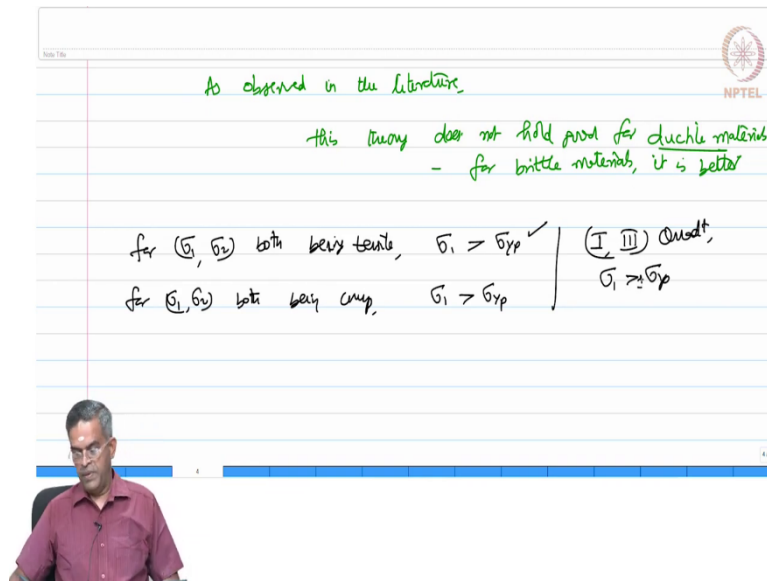 Note Title
NPTEL
As observed in the literature,
this theory does not hold good for ductile materials
- for brittle materials, it is better
for (σ1, σ2) both being tensile, σ1 > σyp ✓ (I, III) Quadt,
for (σ1, σ2) both being comp, σ1 > σyp σ1 > σyp
4